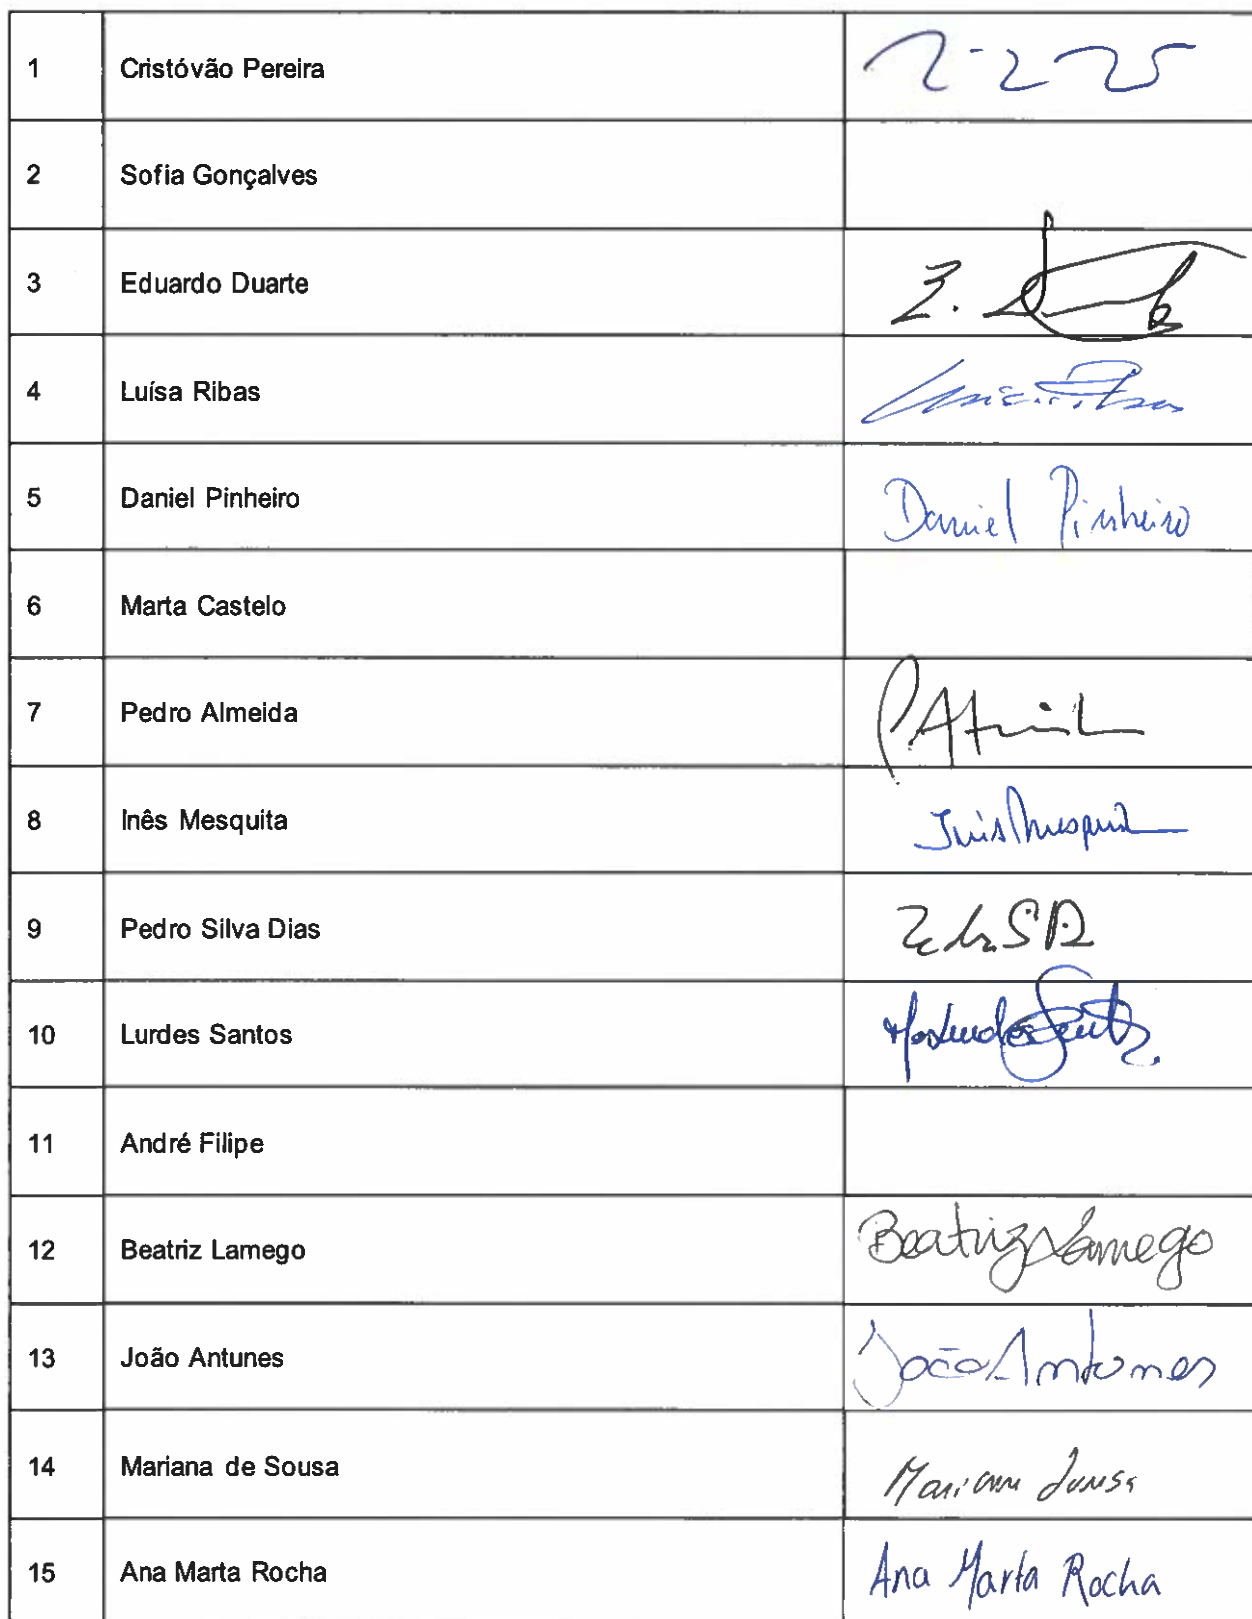 1 Cristóvão Pereira
2 Sofia Gonçalves
3 Eduardo Duarte
4 Luísa Ribas
5 Daniel Pinheiro Daniel Pinheiro
6 Marta Castelo
7 Pedro Almeida
8 Inês Mesquita
9 Pedro Silva Dias
10 Lurdes Santos
11 André Filipe
12 Beatriz Lamego Beatriz Lamego
13 João Antunes João Antunes
14 Mariana de Sousa Mariana Sousa
15 Ana Marta Rocha Ana Marta Rocha